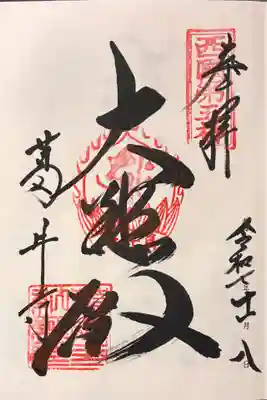 西國第五番
奉拝
令和七年十一月八日
大悲殿
葛井寺